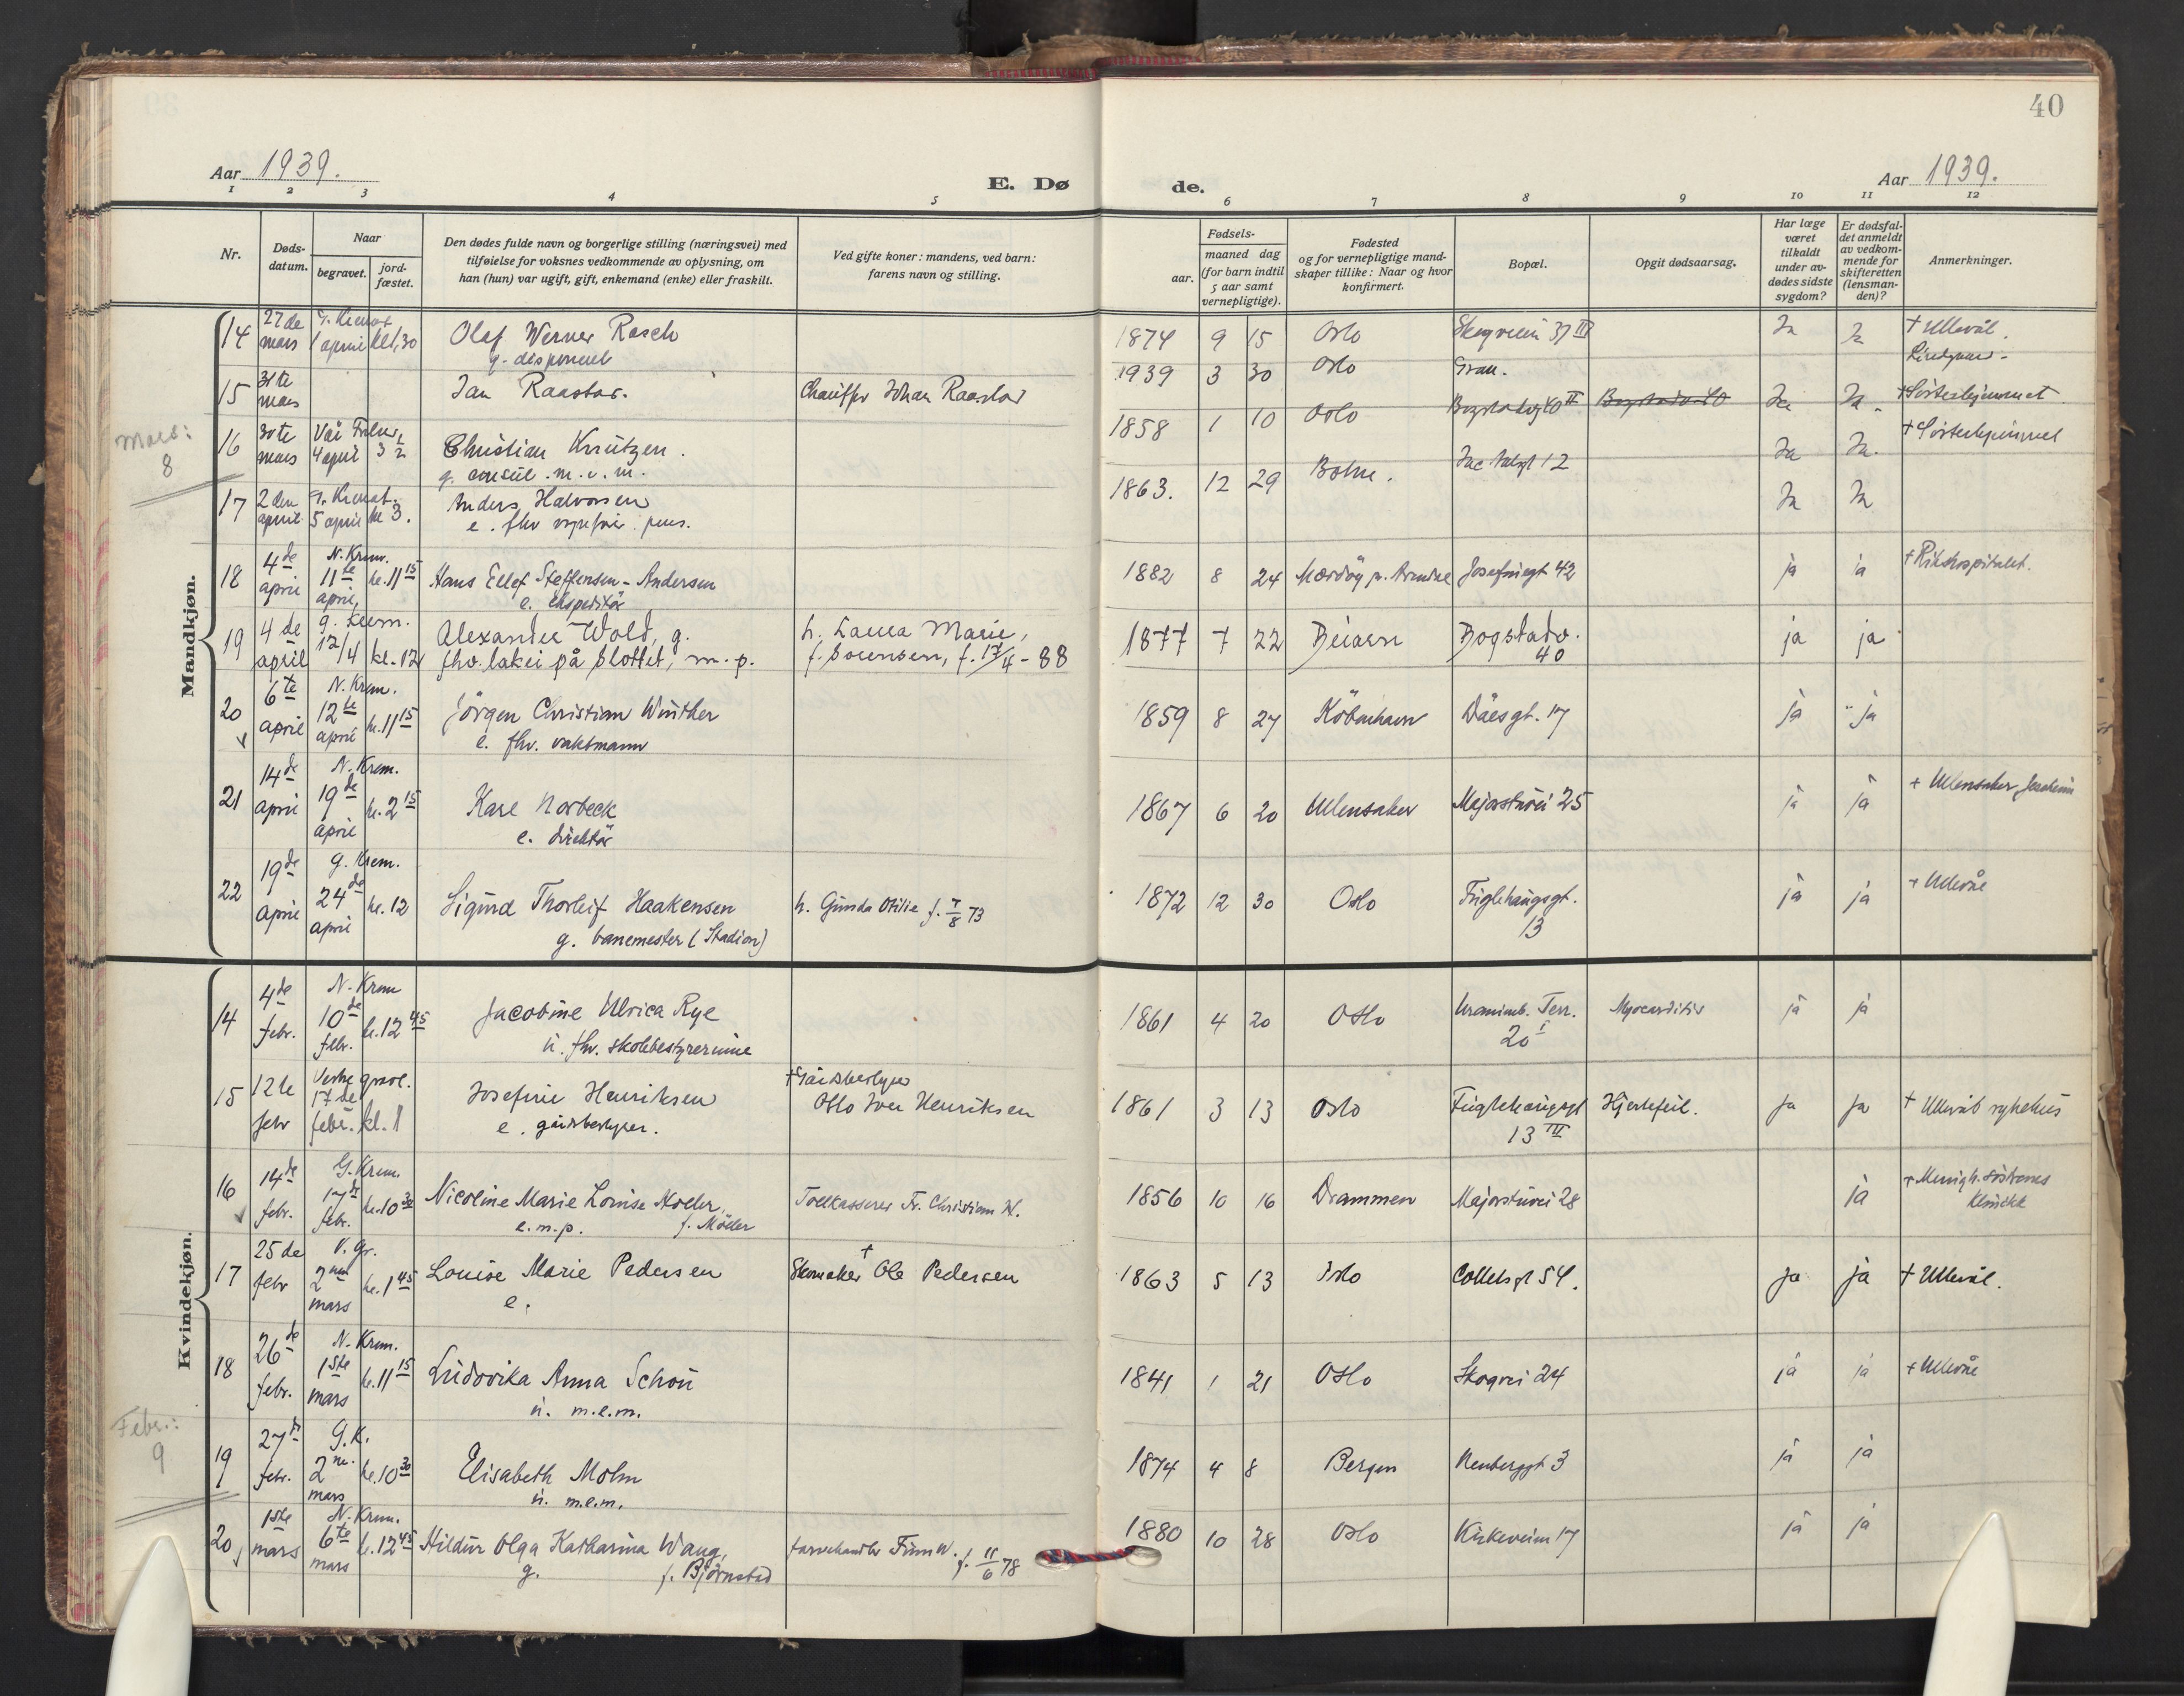 40
Aar 1939.
E. Dø
de.
Aar 1939.
1 2 3 4 5 6 7 8 9 10 11 12
Nr.
Døds-
datum.
Naar
begravet.
jord-
fæstet.
Den dødes fulde navn og borgerlige stilling (næringsvei) med
tilføielse for voksnes vedkommende av oplysning, om
han (hun) var ugift, gift, enkemand (enke) eller fraskilt.
Ved gifte koner: mandens, ved barn:
farens navn og stilling.
Fødsels-
aar.
maaned dag
(for barn indtil
5 aar samt
vernepligtige).
Fødested
og for vernepligtige mand-
skaper tillike: Naar og hvor
konfirmert.
Bopæl.
Opgit dødsaarsag.
Har læge
været
tilkaldt
under av-
dødes sidste
sygdom?
Er dødsfal-
det anmeldt
av vedkom-
mende for
skifteretten
(lensman-
den)?
Anmerkninger.
Mandkjøn.
14 27de mars 1 april kl 1,30 Olaf Werner Rasch 1874 9 15 Oslo Skogveien 37 III Ja Ja + Ullevål.
g. disponent
15 31te mars Jan Raastad. Chauffør Johan Raastad 1939 3 30 Oslo Gran.
Mars:
8
16 30te mars 4 april 3 1/2 Christian Knutzen. 1858 1 10 Oslo Ja Ja
g. consul. m.v.m.
17 2den april 5 april kl 3. Anders Halvorsen 1863. 12 29 Ja Ja
18 4de april N. Krem. 11te april kl. 11 15 Hans Ellef Steffensen-Andersen 1882 8 24 Josefinegt 42 ja ja + Rikshospitalet.
e. ekspeditør
19 4de april g. krem. 12/4 kl. 12 Alexander Wold, g. h. Laura Marie, 1877 7 22 Beiarn Bogstadv. 40 ja ja
fhv. lakei på slottet, m. p. f. Sørensen, f. 17/4-88
20 6te april N. Krem. 12te april kl. 11 15 Jörgen Christian Winther 1859 8 27 Köbenhavn Dåesgt. 17 ja ja
e. fhv. vaktmann
21 14de april N. Krem. 19de april kl. 2 15 Karl Norbeck 1867 6 20 Ullensaker Majorstuvei 25 ja ja + Ullensaker
e. direktör
22 19de april g. Krem. 24de april kl. 12 Sigurd Thorleif Haakensen h. Gunda Otilie f. 7/8 73 1872 12 30 Oslo Fuglehaugsgt. 13 ja ja + Ullevål
g. banemester (Stadion)
Kvindekjøn.
14 4de febr. N. Krem 10de febr. kl. 12 45 Jacobine Ulrica Rye 1861 4 20 Oslo Uranienb. Terr. 20 I Myocarditis ja ja
u. fhv. skolebestyrerinne
15 12te febr Vestre grav. 17de febr. kl. 1 Josefine Henriksen + Gårdbestyrer 1861 3 13 Oslo Fuglehaugsgt 13 IV Hjertefeil. ja ja + Ullevål sykehus
e. gårdbestyrer. Otto Iver Henriksen
16 14de febr. G. Krem. 17de febr. kl. 10 30 Nicoline Marie Lovise Holler, Tollkasserer Fr. Christian H. 1856 10 16 Drammen Majorstuvei 28 ja + Menigh. søstrenes
e. m. p. f. Möller Klinikk
17 25de febr V. gr. 2nen mars kl. 1 45 Louise Marie Pedersen Skomaker + Ole Pedersen 1863 5 13 Oslo Colletsgt 54. ja ja + Ullevål.
e.
18 26de febr. N. Krem. 1ste mars kl. 11 15 Ludovika Anna Schou 1841 1 21 Oslo Skogvei 24 ja ja + Ullevål
u. m.e.m.
Febr.:
9
19 27de febr. G.K. 2ne. mars kl. 10 30 Elisabeth Mohn 1874 4 8 Bergen Neuberggt 3 ja ja
u. m.e.m.
20 1ste mars N. Krem. 6te mars kl. 12 45 Hildur Olga Katharina Wang, farvehandler Finn W. f. 11/6 78 1880 10 28 Oslo Kirkeveien 17 ja ja
g. f. Björnstad